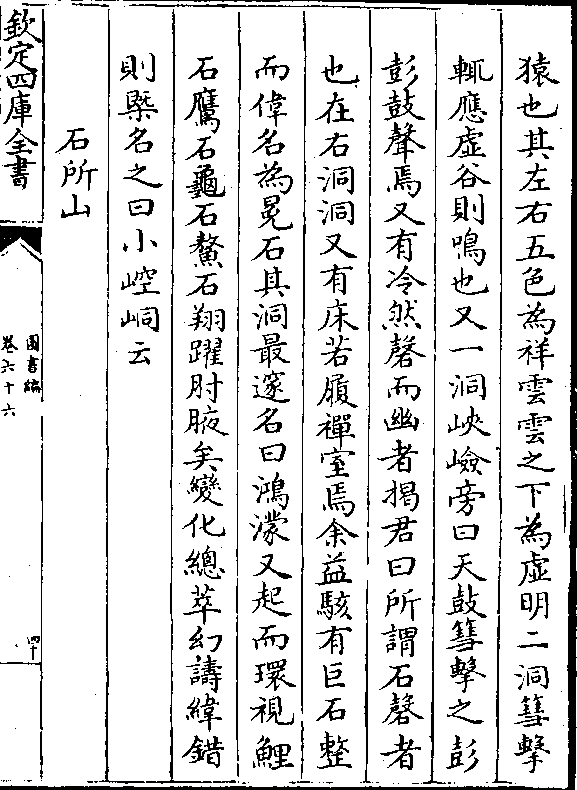 猿也其左右五色為祥雲雲之下為虛明二洞篲擊
輒應虛谷則鳴也又一洞峽嶮旁曰天鼓篲擊之彭
彭鼓聲焉又有冷然磬而幽者揭君曰所謂石磬者
也在右洞洞又有床若履禪室焉余益駭有巨石整
而偉名為冕石其洞最邃名曰鴻濛又起而環視鯉
石鷹石龜石鰲石翔躍肘腋矣變化總萃幻譸緯錯
則槩名之曰小崆峒云
石所山
欽定四庫全書
圖書編
卷六十六
四十